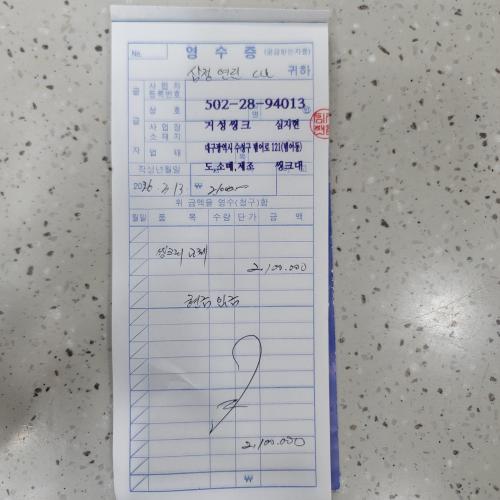 No.
영수증 (공급받는자용)
삼정 귀하
공급자
사업자등록번호 502-28-94013
상호 거성씽크 성명 심지현
사업장소재지 대구광역시 수성구 범어로 121(범어동)
업태 도,소매,제조 종목 씽크대
작성년월일
₩
위 금액을 영수(청구)함
월일 품목 수량 단가 금액
씽크대 교체
2,100.000
현금 입금
2,100.000
₩